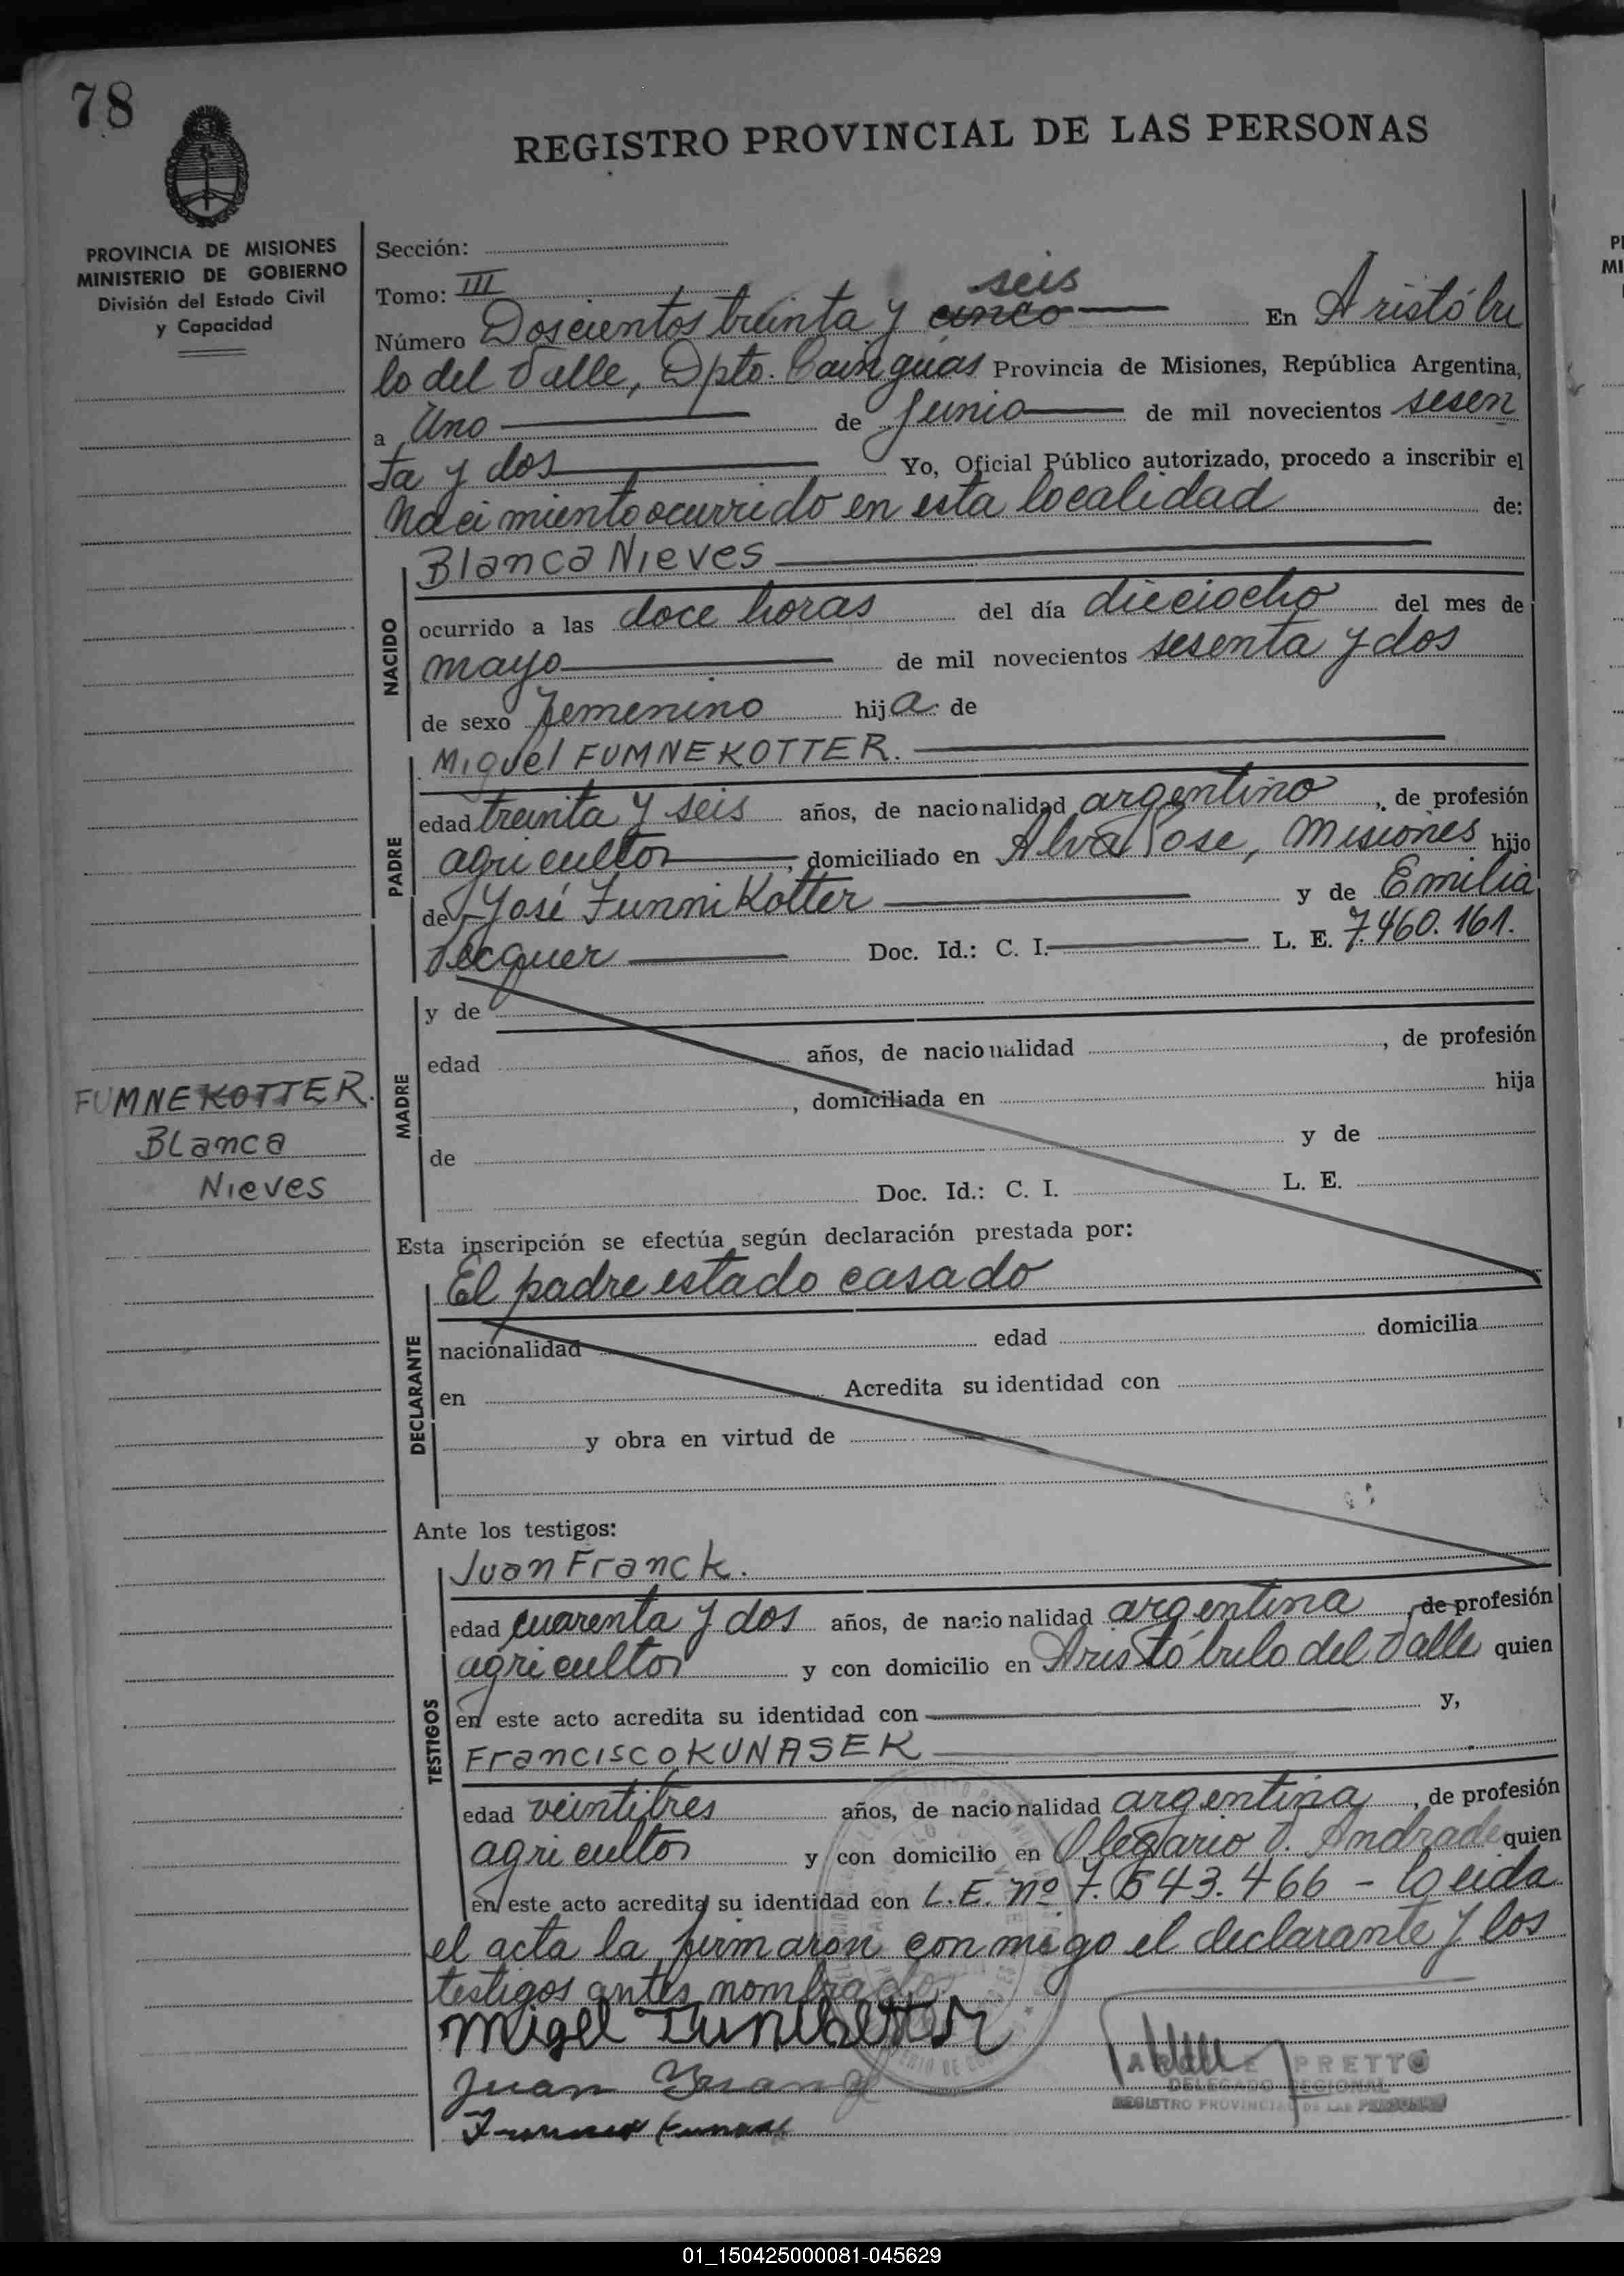 78
REGISTRO PROVINCIAL DE LAS PERSONAS
PROVINCIA DE MISIONES
MINISTERIO DE GOBIERNO
División del Estado Civil
y Capacidad
Sección:
Tomo: III
seis
Número Doscientos treinta y cinco En Aristóbu
lo del Valle, Dpto. Cainguas Provincia de Misiones, República Argentina,
a Uno de Junio de mil novecientos sesen
ta y dos Yo, Oficial Público autorizado, procedo a inscribir el
Nacimiento ocurrido en esta localidad de:
NACIDO
Blanca Nieves
ocurrido a las doce horas del día dieciocho del mes de
mayo de mil novecientos sesenta y dos
de sexo femenino hija de
PADRE
Miguel FUMNEKOTTER.
edad treinta y seis años, de nacionalidad argentino, de profesión
agricultor, domiciliado en Alva Pose, Misiones hijo
de José Funnikotter y de Emilia
Doc. Id.: C. I. L. E. 7.460.161.
MADRE
y de
edad años, de nacionalidad , de profesión
, domiciliada en hija
de y de
Doc. Id.: C. I. L. E.
FUMNEKOTTER.
Blanca
Nieves
Esta inscripción se efectúa según declaración prestada por:
DECLARANTE
El padre estado casado
nacionalidad edad domicilia
en Acredita su identidad con
y obra en virtud de
Ante los testigos:
TESTIGOS
Juan Franck.
edad cuarenta y dos años, de nacionalidad argentina, de profesión
agricultor y con domicilio en Aristóbulo del Valle quien
en este acto acredita su identidad con y,
Francisco KUNASEK
edad veintitres años, de nacionalidad argentina, de profesión
agricultor y con domicilio en Olegario V. Andrade quien
en este acto acredita su identidad con L.E. nº 7.543.466 - Leida
el acta la firmaron conmigo el declarante y los
testigos antes nombrados
Migel
Juan
PRETTO
DELEGADO REGIONAL
REGISTRO PROVINCIAL DE LAS PERSONAS
01_150425000081-045629